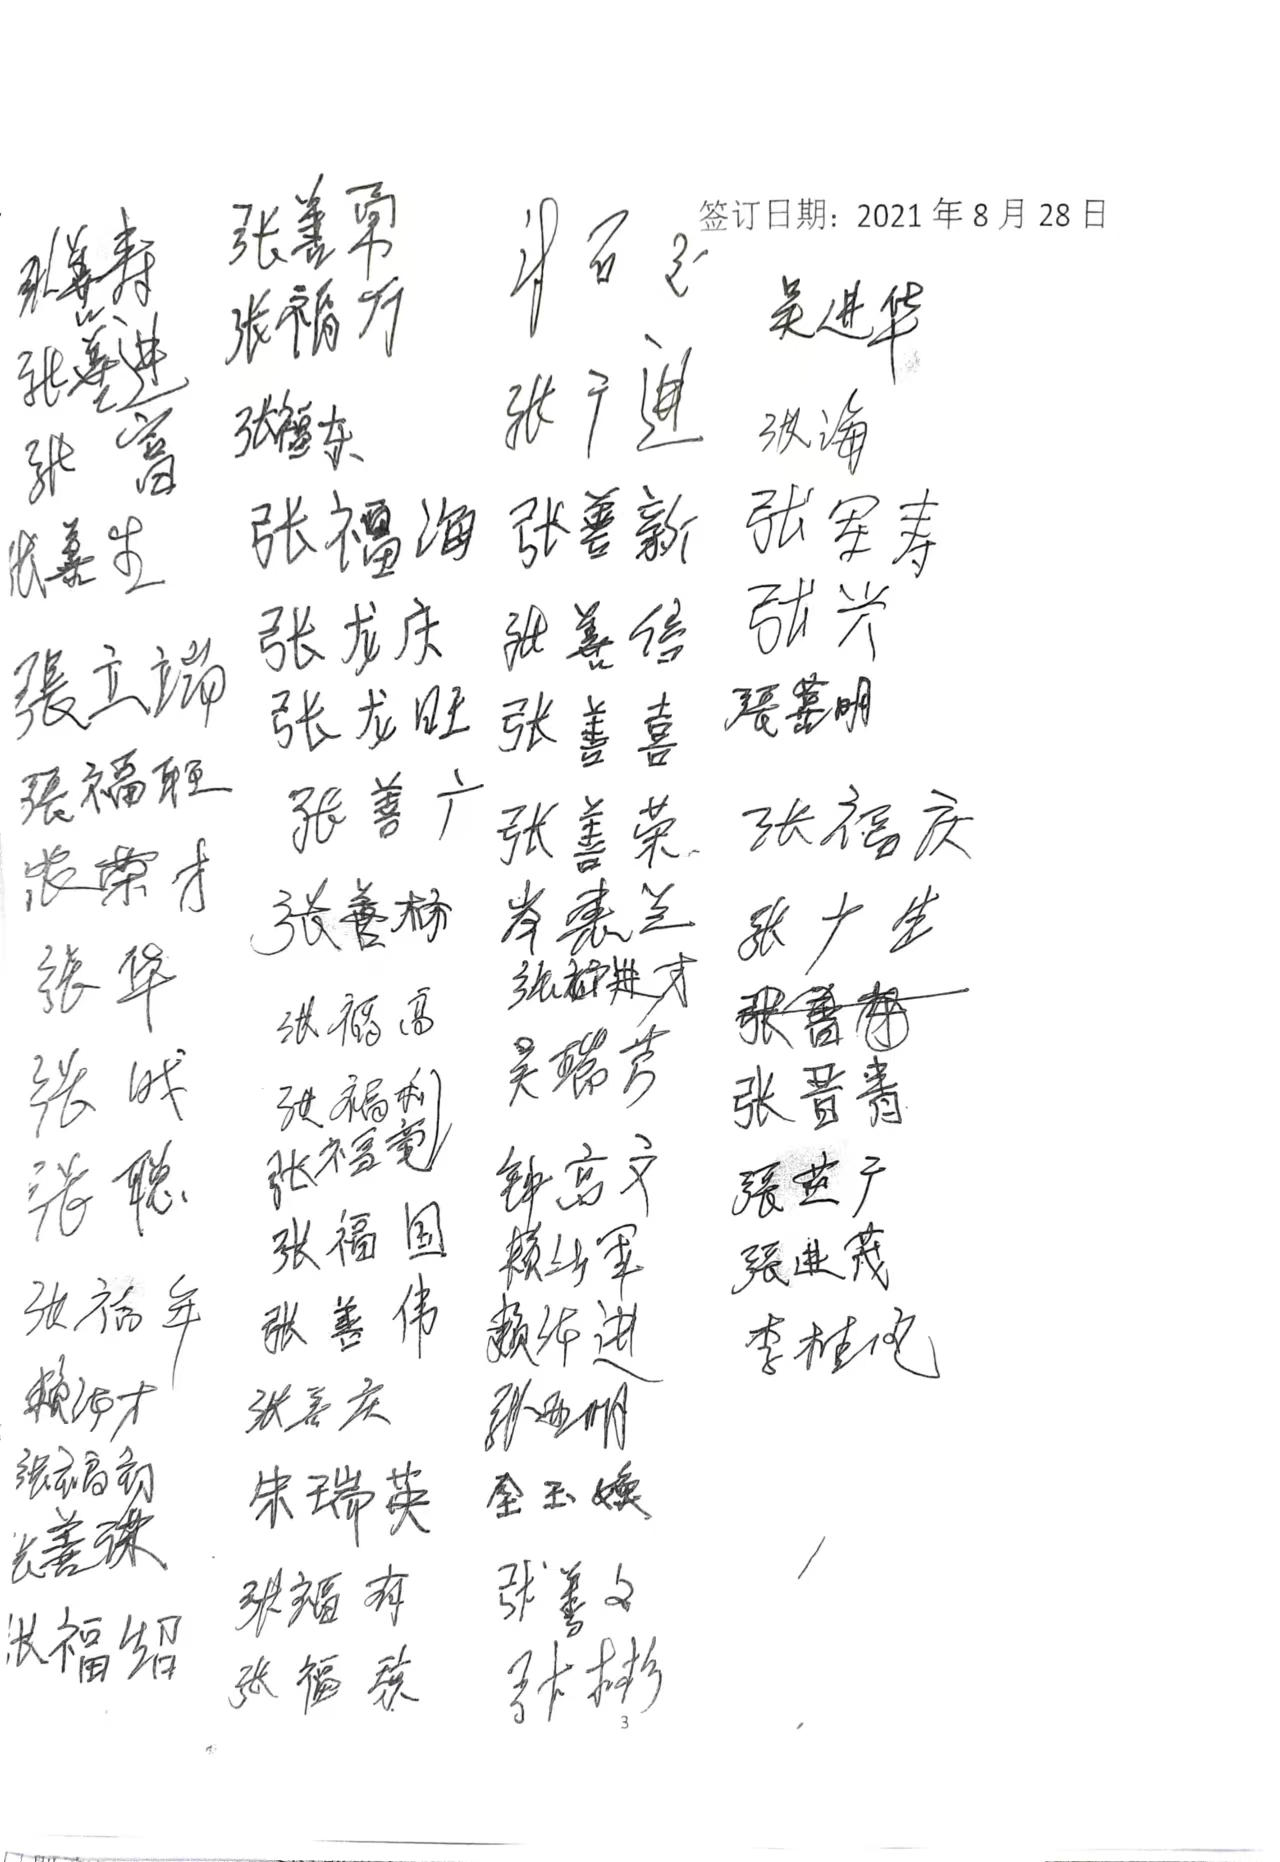 签订日期：2021年8月28日
张善寿
张善进
张富
张善生
張立端
張福旺
张荣才
張华
张成
张聪
张福年
赖沛才
张福初
张善谋
张福绍
张善勇
张福
张福东
张福海
张龙庆
张龙旺
张善广
张善杨
张福高
张福利
张福亮
张福国
张善伟
张善庆
朱瑞英
张福有
张福
张广进
张善新
张善信
张善喜
张善荣
岑惠兰
张进才
吴瑞芳
钟高文
赖军
赖沛进
张亚明
玉
张善文
张彬
吴进华
张海
张军寿
张兴
張善明
张福庆
张广生
张善
张晋青
張广
張进茂
李桂
3